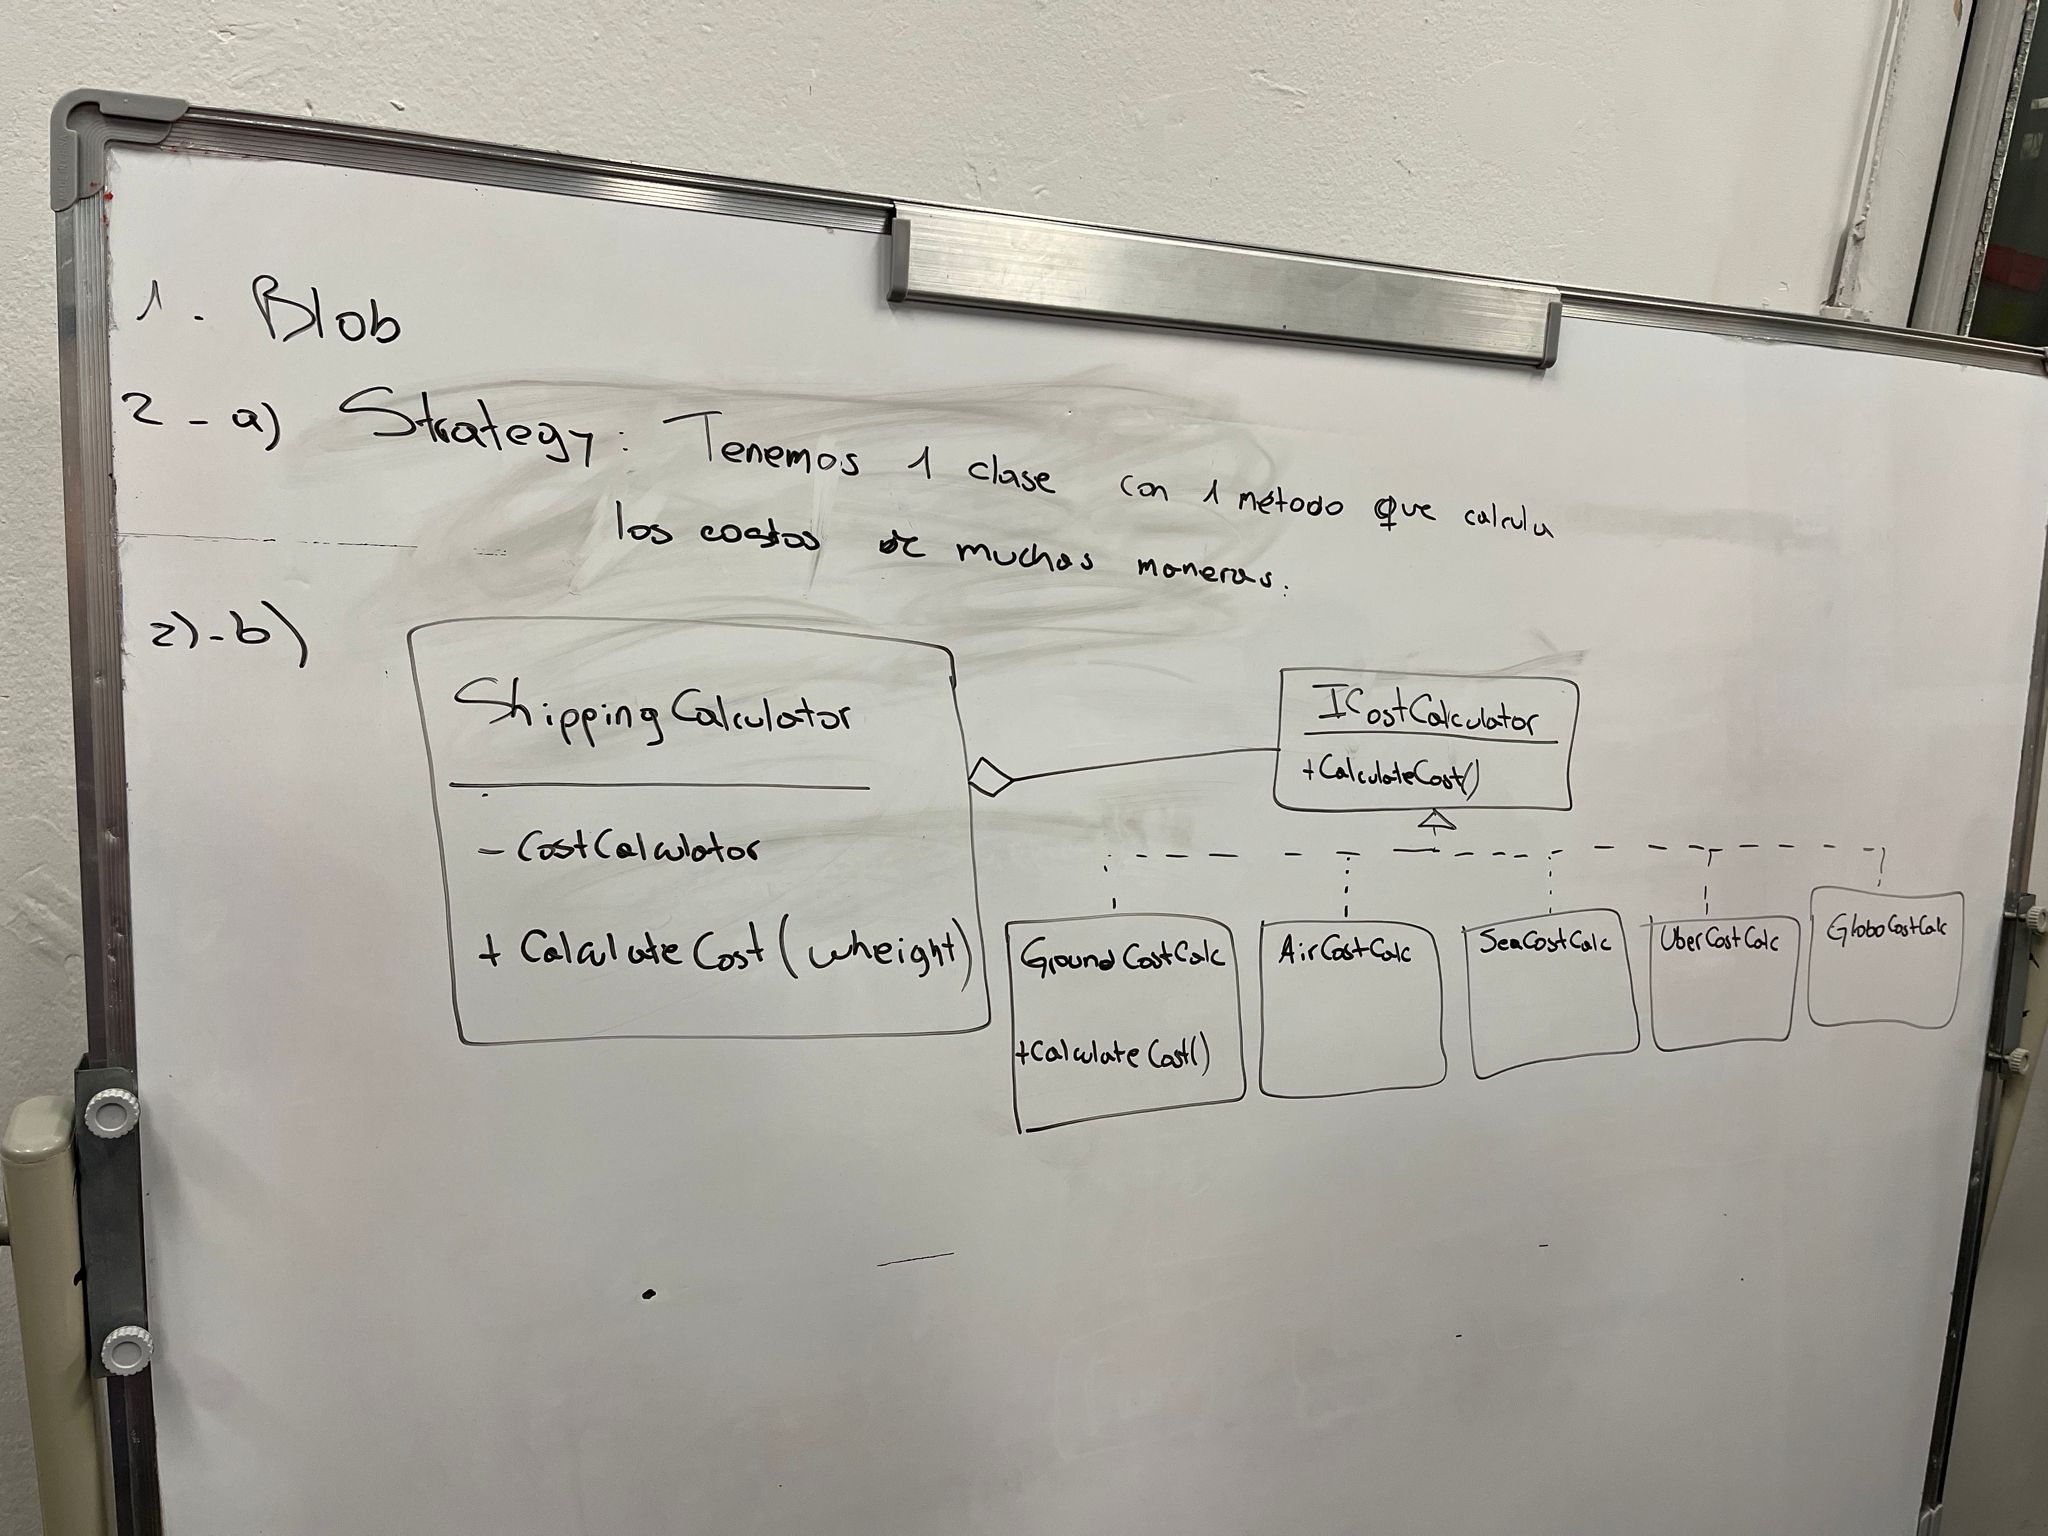 1. Blob
2-a) Strategy: Tenemos 1 clase con 1 método que calcula
los costos de muchas maneras.
2)-b)
ShippingCalculator
- CostCalculator
+ CalculateCost(wheight)
ICostCalculator
+CalculateCost()
GroundCostCalc
+CalculateCost()
AirCostCalc
SeaCostCalc
UberCostCalc
GloboCostCalc